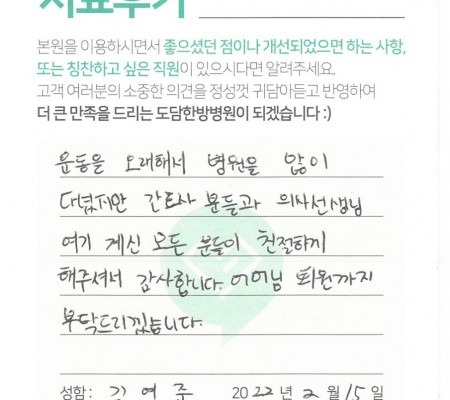 치료후기
본원을 이용하시면서 좋으셨던 점이나 개선되었으면 하는 사항,
또는 칭찬하고 싶은 직원이 있으시다면 알려주세요.
고객 여러분의 소중한 의견을 정성껏 귀담아듣고 반영하여
더 큰 만족을 드리는 도담한방병원이 되겠습니다 :)
운동을 오래해서 병원을 많이
다녔지만 간호사 분들과 의사선생님
여기 계신 모든 분들이 친절하게
해주셔서 감사합니다. 어머님 퇴원까지
부탁드리겠습니다.
성함 : 김 연 준 2022 년 2 월 15 일